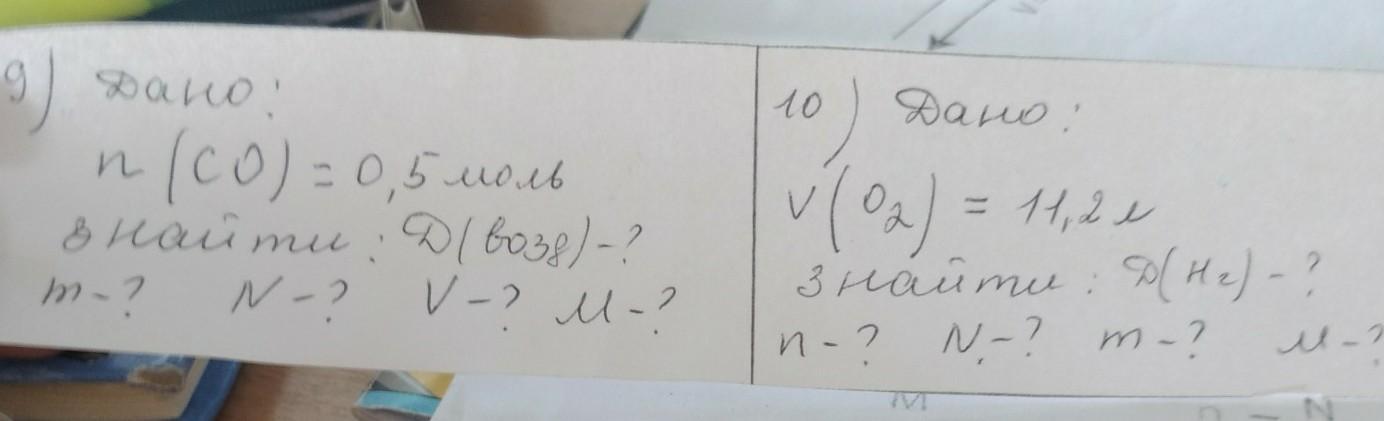 9) Дано:
n(CO) = 0,5 моль
знайти: D(возд) - ?
m - ? N - ? V - ? M - ?
10) Дано:
V(O2) = 11,2 л
знайти: D(H2) - ?
n - ? N. - ? m - ? M - ?
M